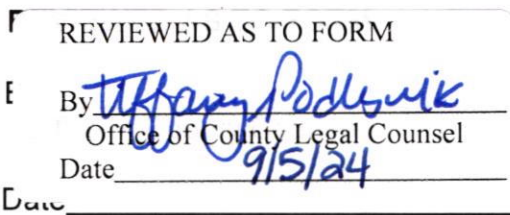 REVIEWED AS TO FORM
By Tiffany
Office of County Legal Counsel
Date 9/5/24
Date